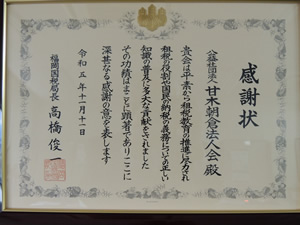 感謝状
公益社団法人 甘木朝倉法人会 殿
貴会は平素から租税教育の推進に尽力され
租税の役割や国民の納税の義務についての正しい
知識の普及に多大な貢献をされました
その功績はまことに顕著でありここに
深甚なる感謝の意を表します
令和五年十一月十一日
福岡国税局長 高橋俊一